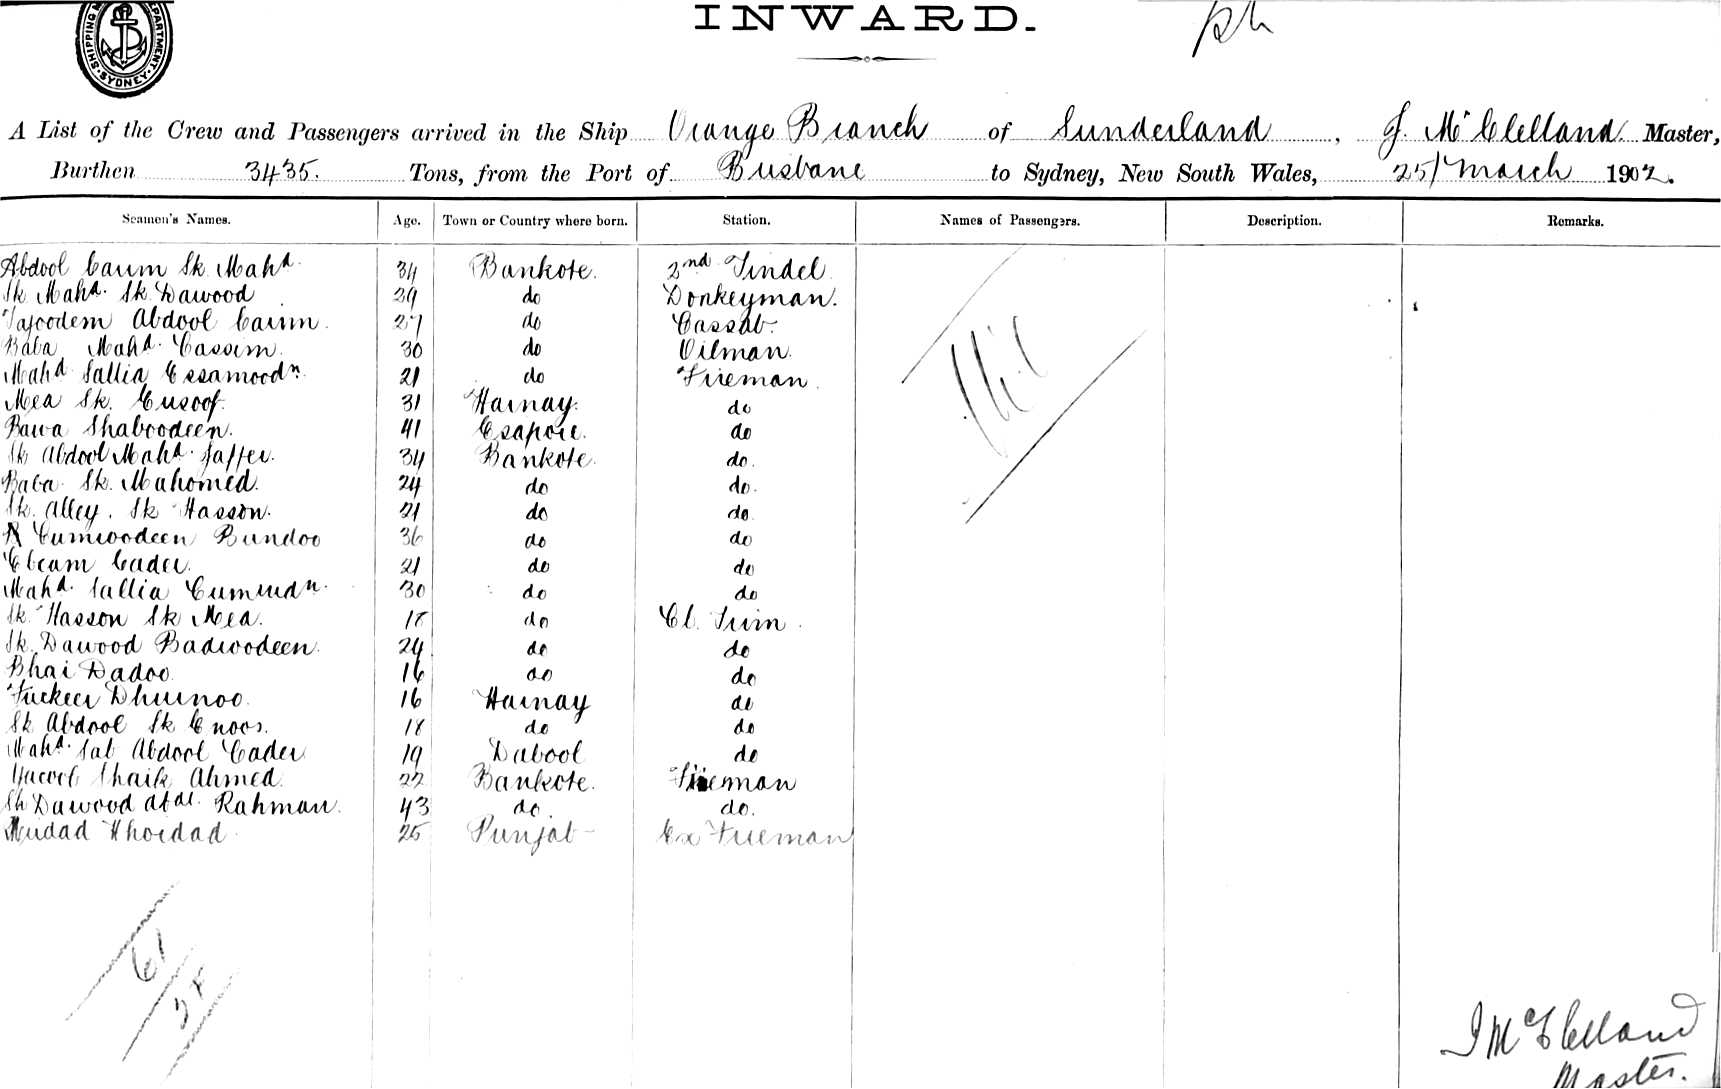 INWARD.
SHIPPING DEPARTMENT SYDNEY
A List of the Crew and Passengers arrived in the Ship Orange Branch of Sunderland, J. McClelland. Master,
Burthen 3435. Tons, from the Port of Brisbane to Sydney, New South Wales, 25/ March 1902.
Seamen's Names. Age. Town or Country where born. Station. Names of Passengers. Description. Remarks.
Abdool Carim Sk. Mahd. 34 Bankote. 2nd Tindel
Sk Mahd. Sk. Dawood 29 do Donkeyman.
Tajoodem Abdool Carim. 27 do Cassab.
Baba Mahd. Cassim. 30 do Oilman.
Mahd Sallia Essamoodn. 21 do Fireman.
Mea Sk. Eusoof. 31 Harnay. do
Bawa Shaboodeen. 41 Esapore. do
Sk Abdool Mahd. Jaffer. 34 Bankote. do.
Baba Sk. Mahomed. 24 do do.
Sk. Alley. Sk Hasson. 21 do do.
Cumroodeen Bundoo 36 do do
Ebram Cader. 21 do do
Mahd. Sallia 30 do do
Sk. Hasson Sk Mea. 18 do Cl. Trim.
Sk. Dawood Badroodeen. 24 do do
Bhai Dadoo 16 do do
Fuckeer Dhurnoo. 16 Harnay do
Sk Abdool Sk Enoos. 18 do do
Mahd. Sab Abdool Cader 19 Dabool do
Yacoob Shaik Ahmed. 22 Bankote. Fireman
Sk Dawood Abdl. Rahman. 43 do. do.
Khordad 25 Punjab Ex Fireman
Nil
61
J McClelland
Master.